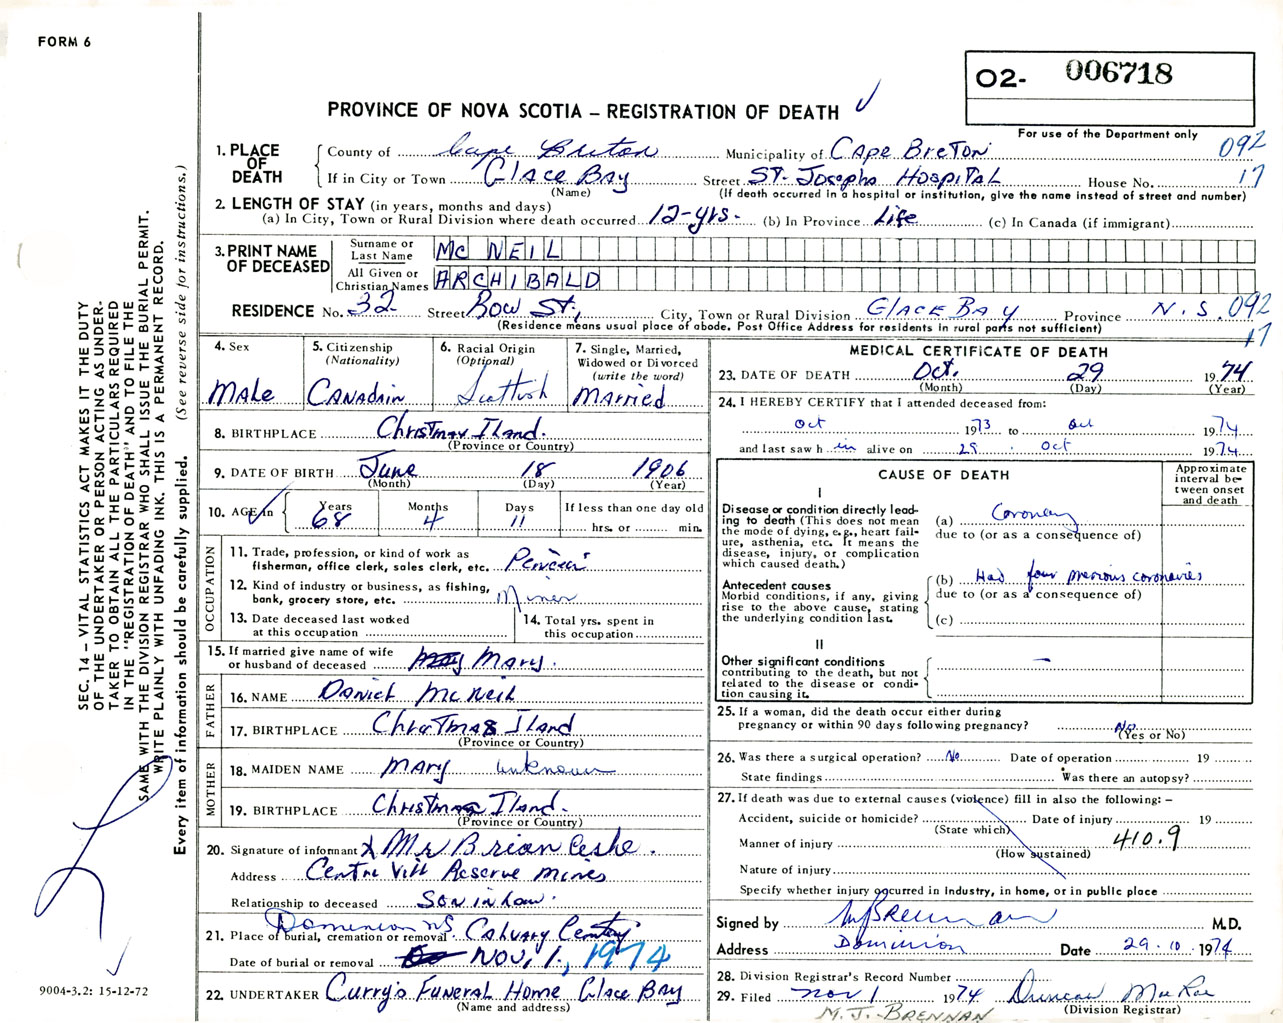 FORM 6
O2- 006718
PROVINCE OF NOVA SCOTIA – REGISTRATION OF DEATH
For use of the Department only
092
17
1. PLACE OF DEATH
County of Cape Breton Municipality of CAPE BreTON
If in City or Town GLACE BAY Street ST. Josephs HOSPITAL House No.
(Name) (If death occurred in a hospital or institution, give the name instead of street and number)
2. LENGTH OF STAY (in years, months and days)
(a) In City, Town or Rural Division where death occurred 12-yrs. (b) In Province Life (c) In Canada (if immigrant)
3. PRINT NAME OF DECEASED
Surname or Last Name Mc NEIL
All Given or Christian Names ARCHIBALD
RESIDENCE No. 32 Street Row St., City, Town or Rural Division GLACE BAY Province N.S. 092
(Residence means usual place of abode. Post Office Address for residents in rural parts not sufficient)
17
4. Sex
MALe
5. Citizenship
(Nationality)
CANADIAN
6. Racial Origin
(Optional)
Scottish
7. Single, Married,
Widowed or Divorced
(write the word)
MArried
8. BIRTHPLACE Christmas Iland.
(Province or Country)
9. DATE OF BIRTH June 18 1906
(Month) (Day) (Year)
10. AGE in
Years Months Days If less than one day old
68 4 11 hrs. or min.
OCCUPATION
11. Trade, profession, or kind of work as
fisherman, office clerk, sales clerk, etc.
12. Kind of industry or business, as fishing,
bank, grocery store, etc. Miner
13. Date deceased last worked
at this occupation
14. Total yrs. spent in
this occupation
15. If married give name of wife
or husband of deceased Mary.
FATHER
16. NAME DANieL McNeil
17. BIRTHPLACE ChrisTmas Iland
(Province or Country)
MOTHER
18. MAIDEN NAME MARY unknown
19. BIRTHPLACE Christmas Iland.
(Province or Country)
20. Signature of informant X Mr Brian
Address Centre Vill Reserve Mines
Relationship to deceased SON in law.
Dominion NS
21. Place of burial, cremation or removal. Calvary
Date of burial or removal NOV, 1, 1974
22. UNDERTAKER Curry's Funeral Home Glace BAY
(Name and address)
MEDICAL CERTIFICATE OF DEATH
23. DATE OF DEATH Oct. 29 1974
(Month) (Day) (Year)
24. I HEREBY CERTIFY that I attended deceased from:
Oct 1973 to Oct 1974
and last saw him alive on 29 Oct 1974
CAUSE OF DEATH
Approximate
interval be-
tween onset
and death
I
Disease or condition directly lead-
ing to death (This does not mean
the mode of dying, e.g., heart fail-
ure, asthenia, etc. It means the
disease, injury, or complication
which caused death.)
(a) Coronary
due to (or as a consequence of)
Antecedent causes
Morbid conditions, if any, giving
rise to the above cause, stating
the underlying condition last.
(b) Had four previous coronaries
due to (or as a consequence of)
(c)
II
Other significant conditions
contributing to the death, but not
related to the disease or condi-
tion causing it.
—
25. If a woman, did the death occur either during
pregnancy or within 90 days following pregnancy? No
(Yes or No)
26. Was there a surgical operation? No Date of operation 19
State findings Was there an autopsy?
27. If death was due to external causes (violence) fill in also the following: –
Accident, suicide or homicide? Date of injury 19
(State which)
Manner of injury 410.9
(How sustained)
Nature of injury
Specify whether injury occurred in industry, in home, or in public place
Signed by MJ Brennan M.D.
Address Dominion Date 29.10.1974
28. Division Registrar's Record Number
29. Filed Nov 1 1974 Duncan MacRae
(Division Registrar)
M.J. BRENNAN
SEC. 14 – VITAL STATISTICS ACT MAKES IT THE DUTY
OF THE UNDERTAKER OR PERSON ACTING AS UNDER-
TAKER TO OBTAIN ALL THE PARTICULARS REQUIRED
IN THE "REGISTRATION OF DEATH" AND TO FILE THE
SAME WITH THE DIVISION REGISTRAR WHO SHALL ISSUE THE BURIAL PERMIT.
WRITE PLAINLY WITH UNFADING INK. THIS IS A PERMANENT RECORD.
Every item of information should be carefully supplied. (See reverse side for instructions.)
9004-3.2: 15-12-72